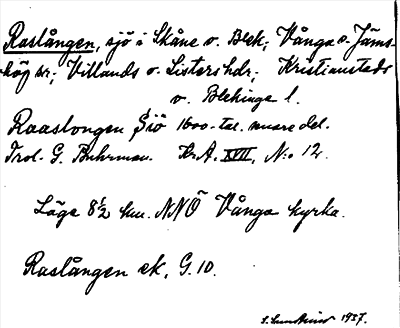 Raslången, sjö i Skåne o. Blek; Vånga o. Jäms-
hög snr; Villands o. Listers hdr; Kristianstads
o. Blekinge l.
Raaslongen Siö 1600-tal. senare del.
Trol. G. Buhrman. Kr.A. XVII, N:o 12.
Läge 8 1/2 km. NNÖ Vånga kyrka.
Raslången ek, G. 10.
1937.